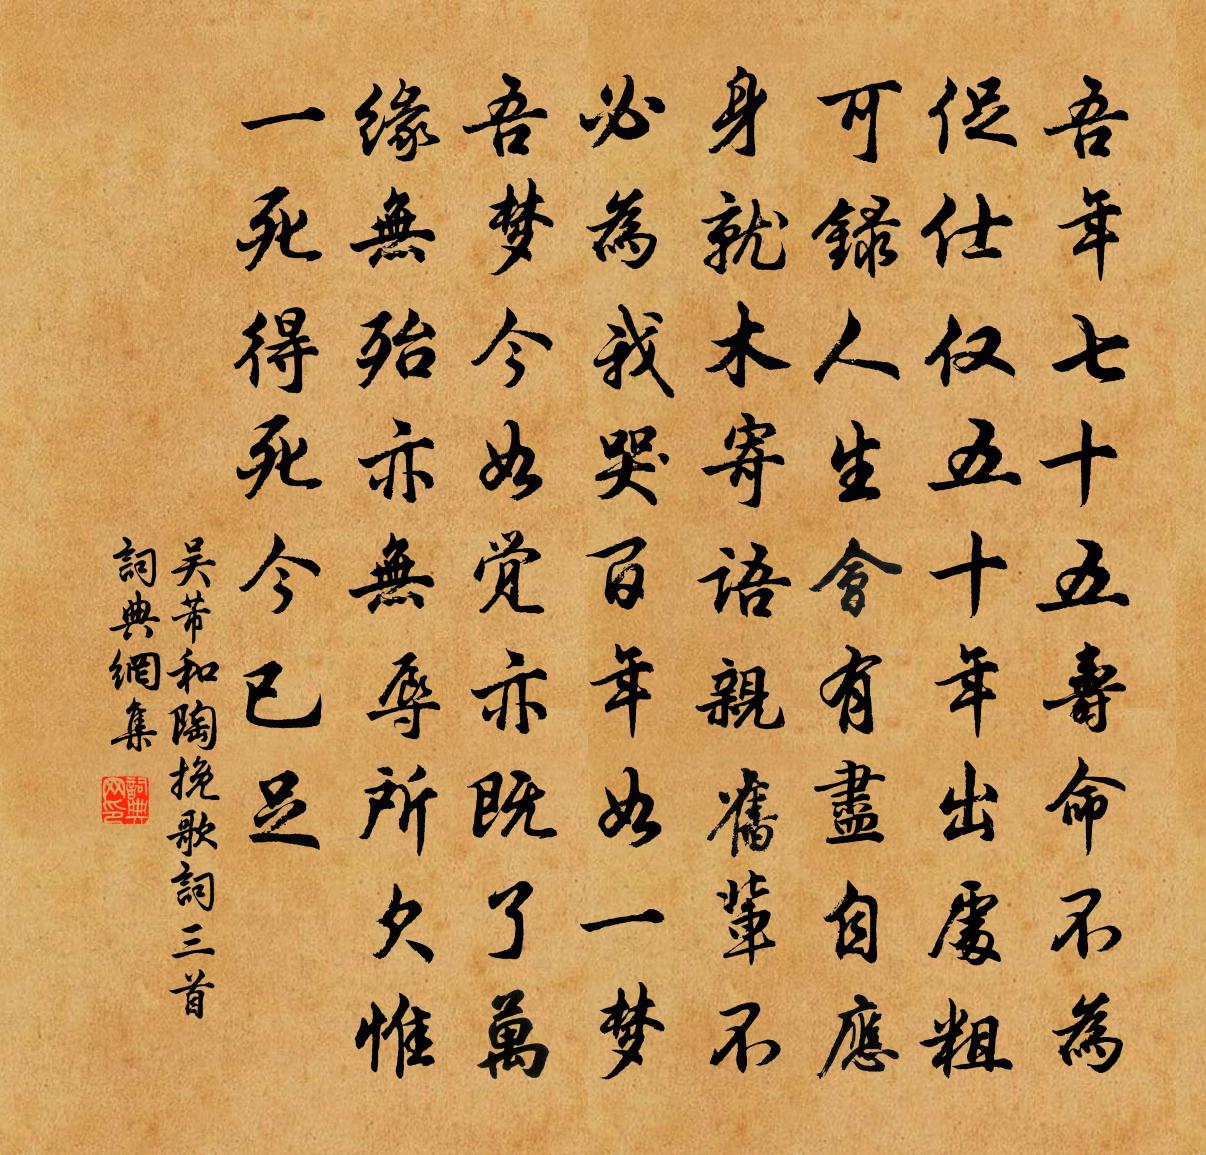 吾年七十五壽命不為
促仕仅五十年出處粗
可録人生會有盡自應
身就木寄語親舊輩不
必為我哭百年如一梦
吾梦今如觉亦既了萬
缘無殆亦無辱所欠惟
一死得死今已足
吴芾和陶挽歌詞三首
詞典網集
詞典网印